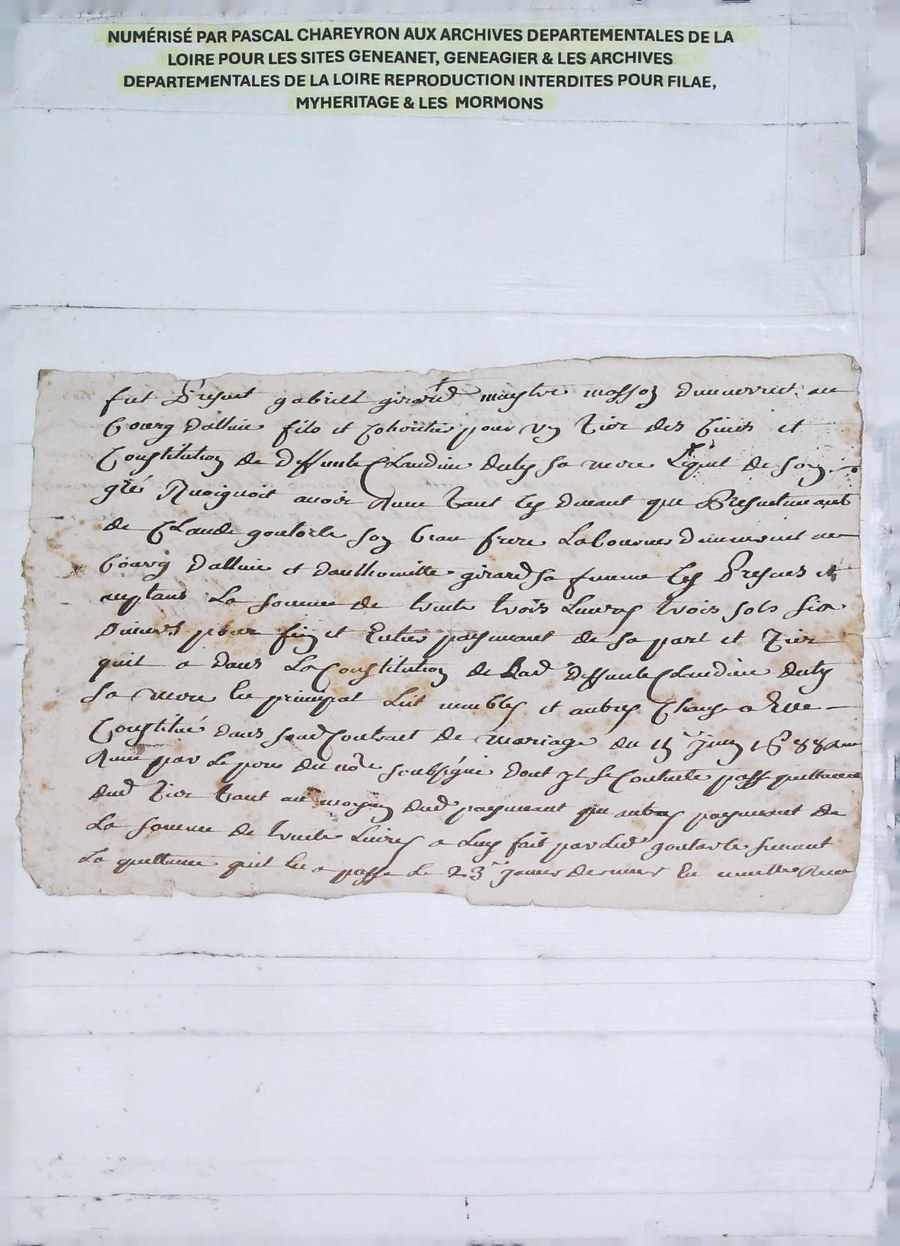 NUMÉRISÉ PAR PASCAL CHAREYRON AUX ARCHIVES DEPARTEMENTALES DE LA
LOIRE POUR LES SITES GENEANET, GENEAGIER & LES ARCHIVES
DEPARTEMENTALES DE LA LOIRE REPRODUCTION INTERDITES POUR FILAE,
MYHERITAGE & LES MORMONS
fut present gabriell girard maystre masson demeurant au
bourg d'allieu fils et coheritie pour un tier des biens et
Constitution de deffunte Claudine sa mere Lequel de son
gré avoir tant que presentement
de Claude goutorbe son beau frere Laboureur demeurant au
bourg dallieu et danthoinette girard sa femme presens et
aceptans La somme de trente trois Livres trois sols six
deniers pour fin et Entier payement de sa part et tier
quil a dans La Constitution de Lad deffunte Claudine
sa mere en principal Lit meubles et autres Chose a Elle
Constitué dans sond Contract de mariage du 15 juin 1688
par le pere du no.re soubsigné dont il se Contente passe quittance
dud tier tant au moyen dud payement que autres payement de
La somme de trente Livres a Luy fait par led goutorbe suivant
La quittance quil en a passe Le 23 janvier dernier